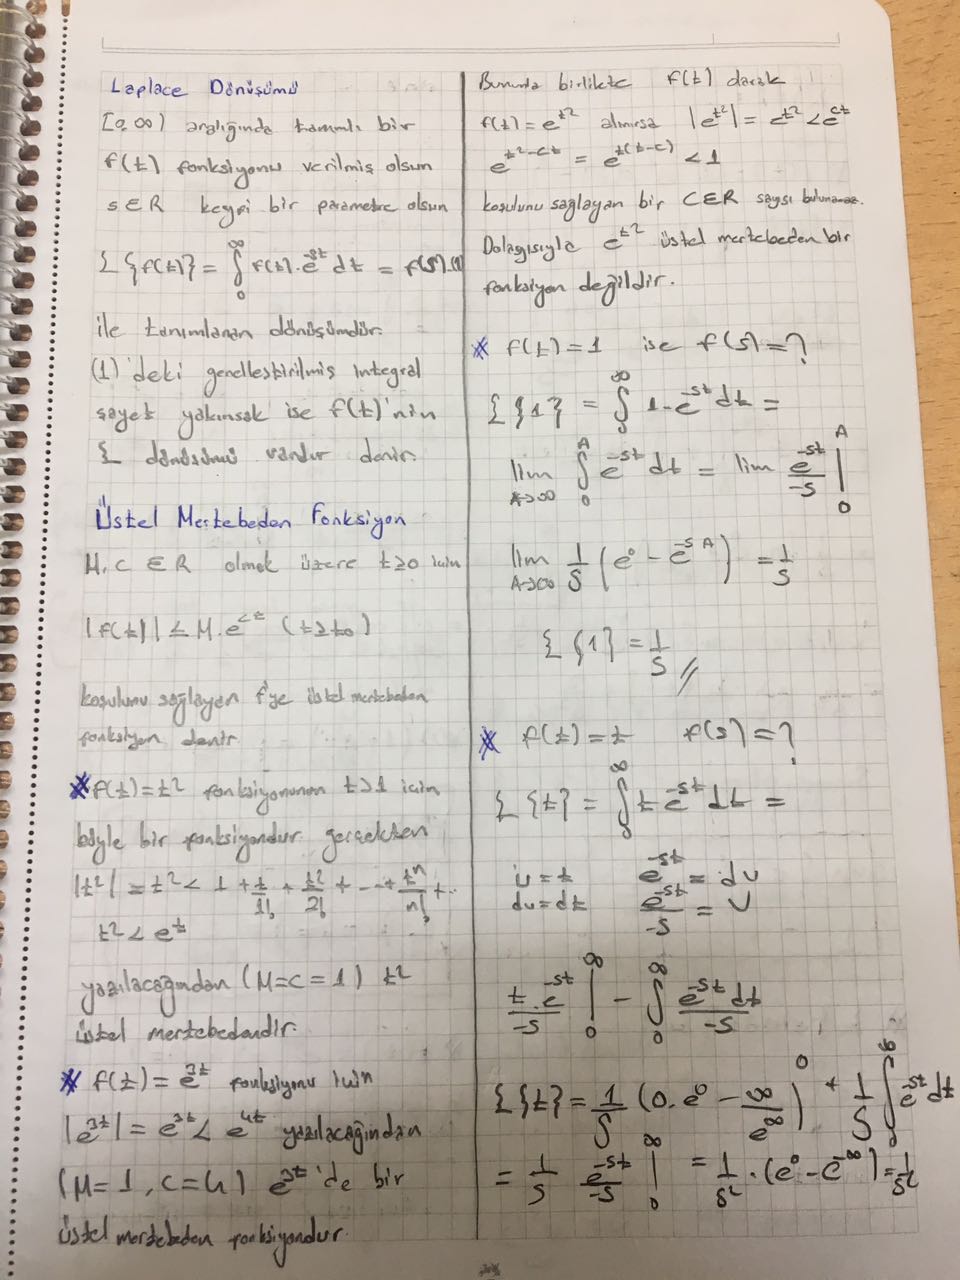 Laplace Dönüşümü
[0,∞) aralığında tanımlı bir
f(t) fonksiyonu verilmiş olsun
s∈R keyfi bir parametre olsun
L{f(t)} = ∫₀^∞ f(t).e^-st dt = f(s).(1)
ile tanımlanan dönüşümdür.
(1)'deki genelleştirilmiş integral
şayet yakınsak ise f(t)'nin
L dönüşümü vardır denir.
Üstel Mertebeden Fonksiyon
M,C ∈R olmak üzere t≥0 için
|f(t)| < M.e^ct (t≥t₀)
koşulunu sağlayan f'ye üstel mertebeden
fonksiyon denir
* f(t)=t² fonksiyonunun t>1 için
böyle bir fonksiyondur gerçekten
|t²| = t² < 1 + t/1! + t²/2! + --+ t^n/n! + ..
t² < e^t
yazılacağından (M=c=1) t²
üstel mertebedendir.
* f(t) = e^3t fonksiyonu için
|e^3t| = e^3t < e^4t yazılacağından
(M=1, c=4) e^3t 'de bir
üstel mertebeden fonksiyondur.
Bununla birlikte f(t) olarak
f(t) = e^t² alınırsa |e^t²| = e^t² < e^ct
e^t²-ct = e^t(t-c) < 1
koşulunu sağlayan bir C∈R sayısı bulunamaz.
Dolayısıyla e^t² üstel mertebeden bir
fonksiyon değildir.
* f(t)=1 ise f(s)=?
L{1} = ∫₀^∞ 1.e^-st dt =
lim A→∞ ∫₀^A e^-st dt = lim e^-st/-s |₀^A
lim A→∞ 1/s (e⁰ - e^-sA) = 1/s
L{1} = 1/s //
* f(t)=t f(s)=?
L{t} = ∫₀^∞ t e^-st dt =
u=t e^-st = du
du=dt e^-st/-s = v
t.e^-st/-s |₀^∞ - ∫₀^∞ e^-st dt/-s
L{t} = 1/s (0.e⁰ - ∞/e^∞)⁰ + 1/s ∫₀^∞ e^-st dt
= 1/s e^-st/-s |₀^∞ = 1/s² .(e⁰ - e^-∞) = 1/s²